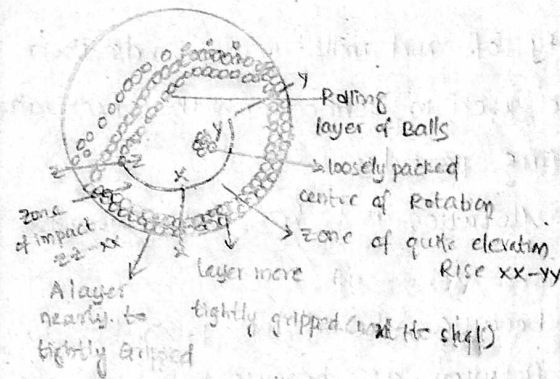 Y
Rolling
layer of Balls
Y
loosely packed
centre of Rotation
zone of quite elevation
Rise xx-yy
Z
Z
X
X
zone
of impact
zz-xx
A layer
nearly to
tightly Gripped
layer more
tightly gripped